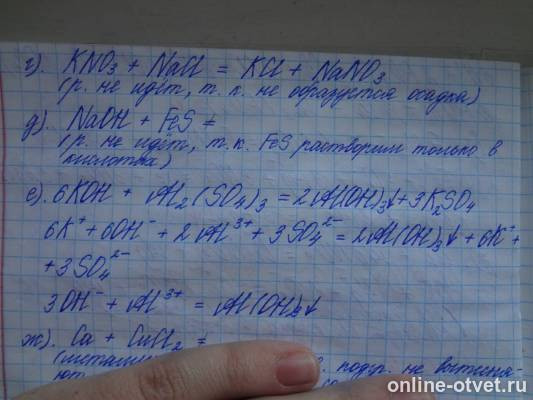 г). KNO₃ + NaCl = KCl + NaNO₃
(р. не идёт, т. к. не образуется осадка)
д). NaOH + FeS =
(р. не идёт, т.к. FeS растворим только в
кислотах)
е). 6KOH + Al₂(SO₄)₃ = 2Al(OH)₃↓ + 3K₂SO₄
6K⁺ + 6OH⁻ + 2Al³⁺ + 3SO₄²⁻ = 2Al(OH)₃↓ + 6K⁺ +
+ 3SO₄²⁻
3OH⁻ + Al³⁺ = Al(OH)₃↓
ж). Ca + CuCl₂ =
не вытесня-
online-otvet.ru